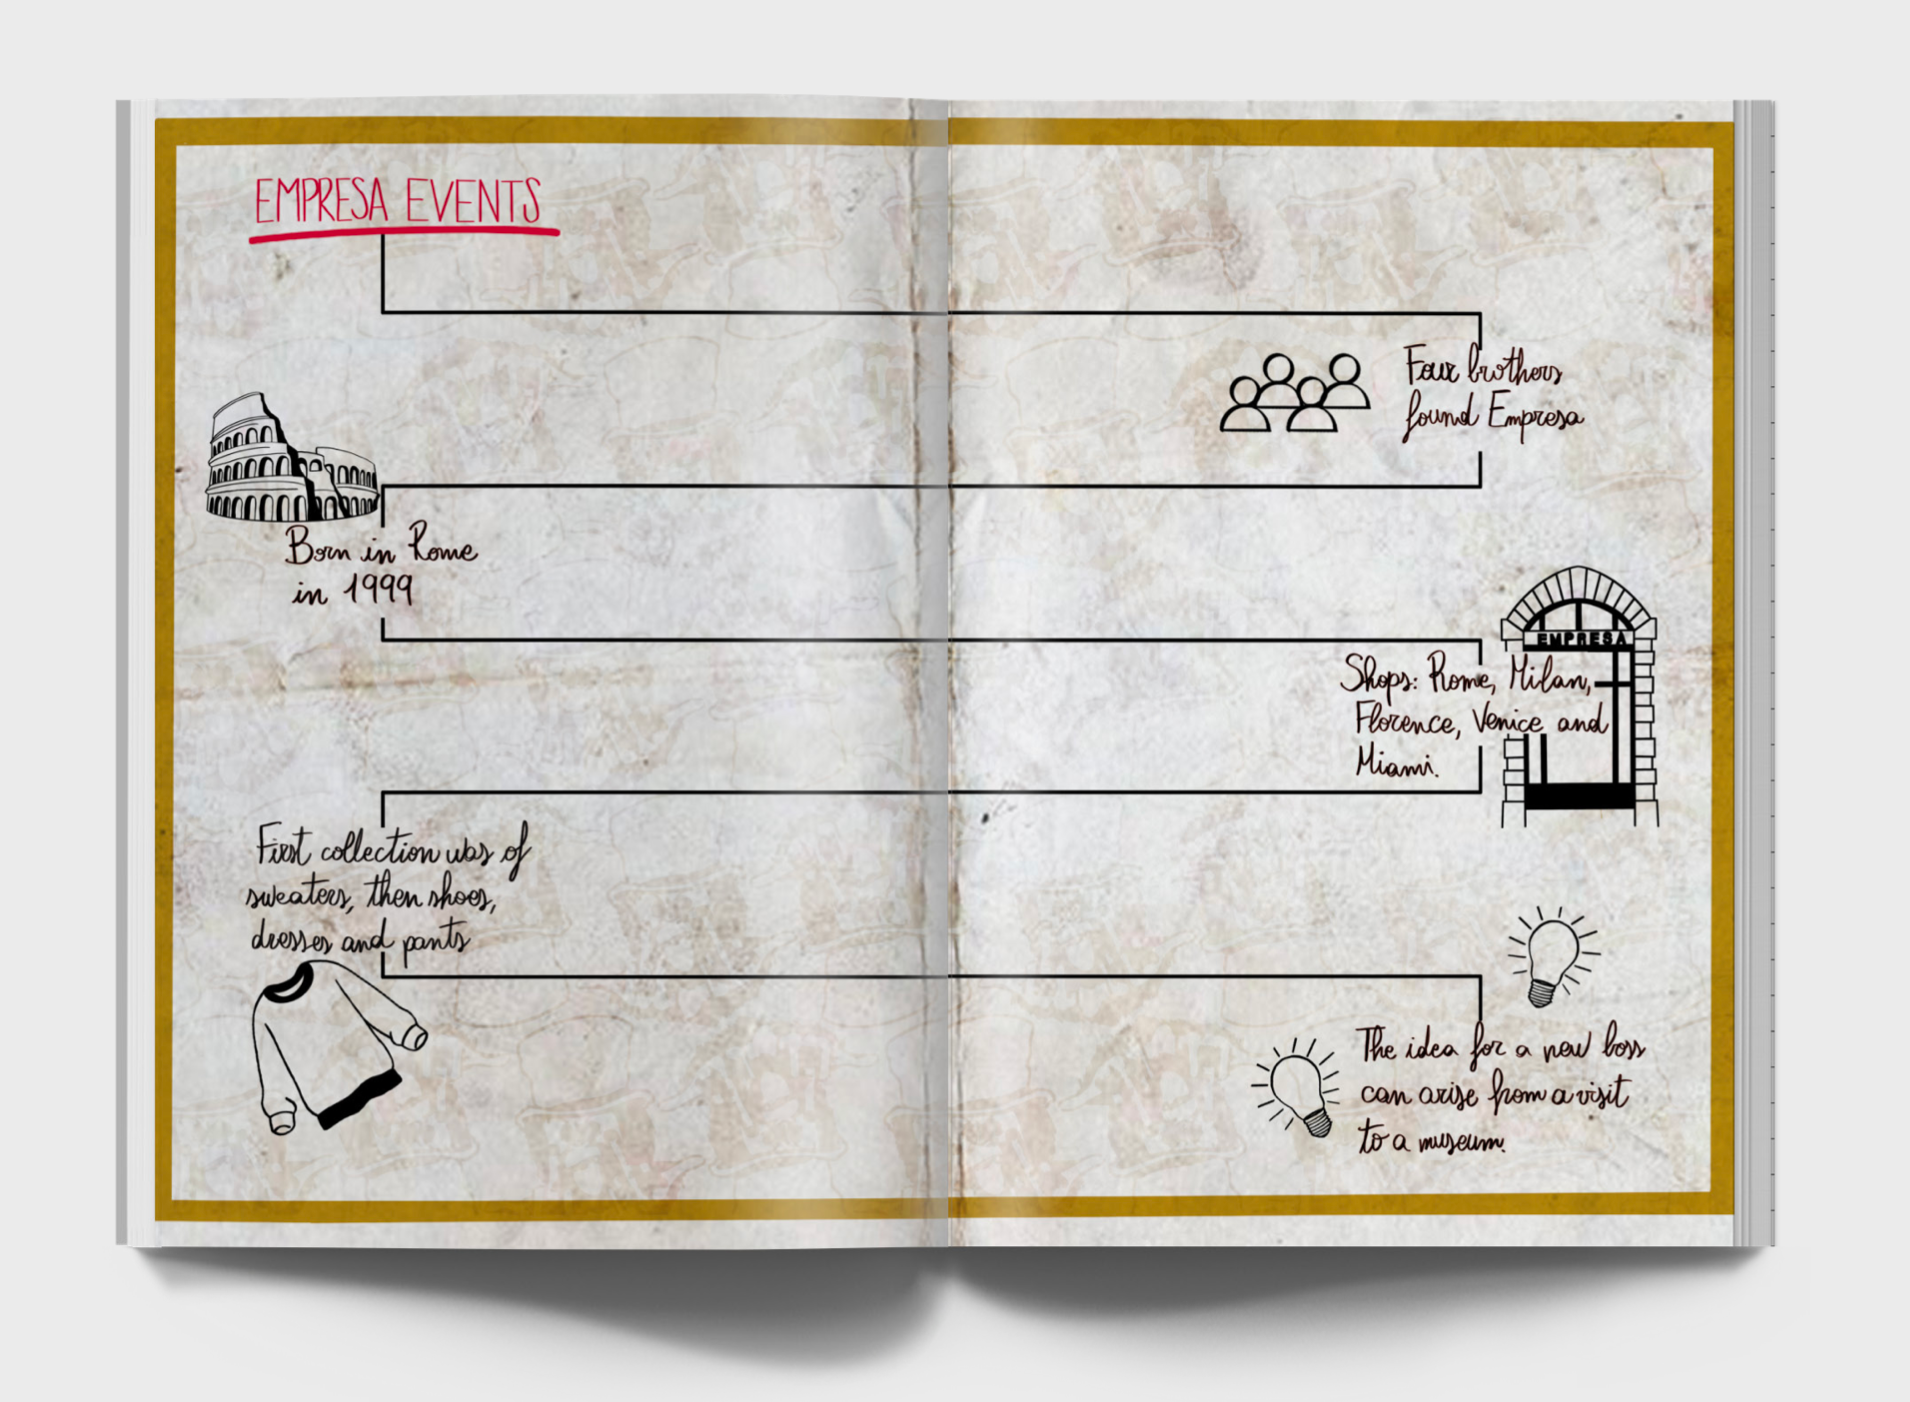 EMPRESA EVENTS
Four brothers
found Empresa
Born in Rome
in 1999
EMPRESA
Shops: Rome, Milan,
Florence, Venice and
Miami.
First collection was of
sweaters, then shoes,
dresses and pants
The idea for a new boss
can arise from a visit
to a museum.